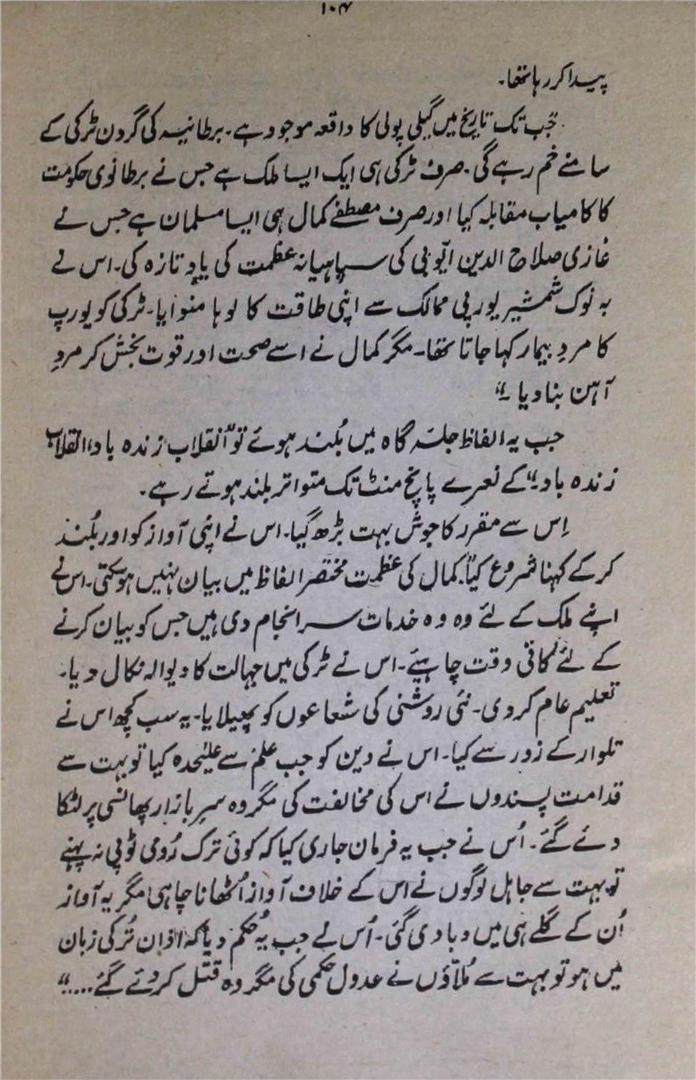 ۱۰۴
پیدا کر رہا تھا۔
جب تک تاریخ میں گیلی پولی کا واقعہ موجود ہے۔ برطانیہ کی گردن ٹرکی کے
سامنے خم رہے گی۔ صرف ٹرکی ہی ایک ایسا ملک ہے جس نے برطانوی حکومت
کا کامیاب مقابلہ کیا اور صرف مصطفےٰ کمال ہی ایسا مسلمان ہے جس نے
غازی صلاح الدین ایوبی کی سپاہیانہ عظمت کی یاد تازہ کی۔ اس نے
بہ نوک شمشیر یورپی ممالک سے اپنی طاقت کا لوہا منوایا۔ ٹرکی کو یورپ
کا مردِ بیمار کہا جاتا تھا۔ مگر کمال نے اسے صحت اور قوت بخش کر مردِ
آہن بنا دیا۔"
جب یہ الفاظ جلسہ گاہ میں بُلند ہوئے تو "انقلاب زندہ باد، انقلاب
زندہ باد" کے نعرے پانچ منٹ تک متواتر بلند ہوتے رہے۔
اِس سے مقرر کا جوش بہت بڑھ گیا۔ اس نے اپنی آواز کو اور بلند
کر کے کہنا شروع کیا "کمال کی عظمت مختصر الفاظ میں بیان نہیں ہو سکتی۔ اس نے
اپنے ملک کے لئے وہ وہ خدمات سر انجام دی ہیں جس کو بیان کرنے
کے لئے کافی وقت چاہیئے۔ اس نے ٹرکی میں جہالت کا دیوالہ نکال دیا۔
تعلیم عام کر دی۔ نئی روشنی کی شعاعوں کو پھیلایا۔ یہ سب کچھ اس نے
تلوار کے زور سے کیا۔ اس نے دین کو جب علم سے علیٰحدہ کیا تو بہت سے
قدامت پسندوں نے اس کی مخالفت کی مگر وہ سرِ بازار پھانسی پر لٹکا
دئے گئے۔ اُس نے جب یہ فرمان جاری کیا کہ کوئی ترک رُومی ٹوپی نہ پہنے
تو بہت سے جاہل لوگوں نے اس کے خلاف آواز اُٹھانا چاہی مگر یہ آواز
اُن کے گلے ہی میں دبا دی گئی۔ اُس نے جب یہ حُکم دیا کہ اذان تُرکی زبان
میں ہو تو بہت سے مُلّاؤں نے عدول حکمی کی مگر وہ قتل کر دئے گئے....."